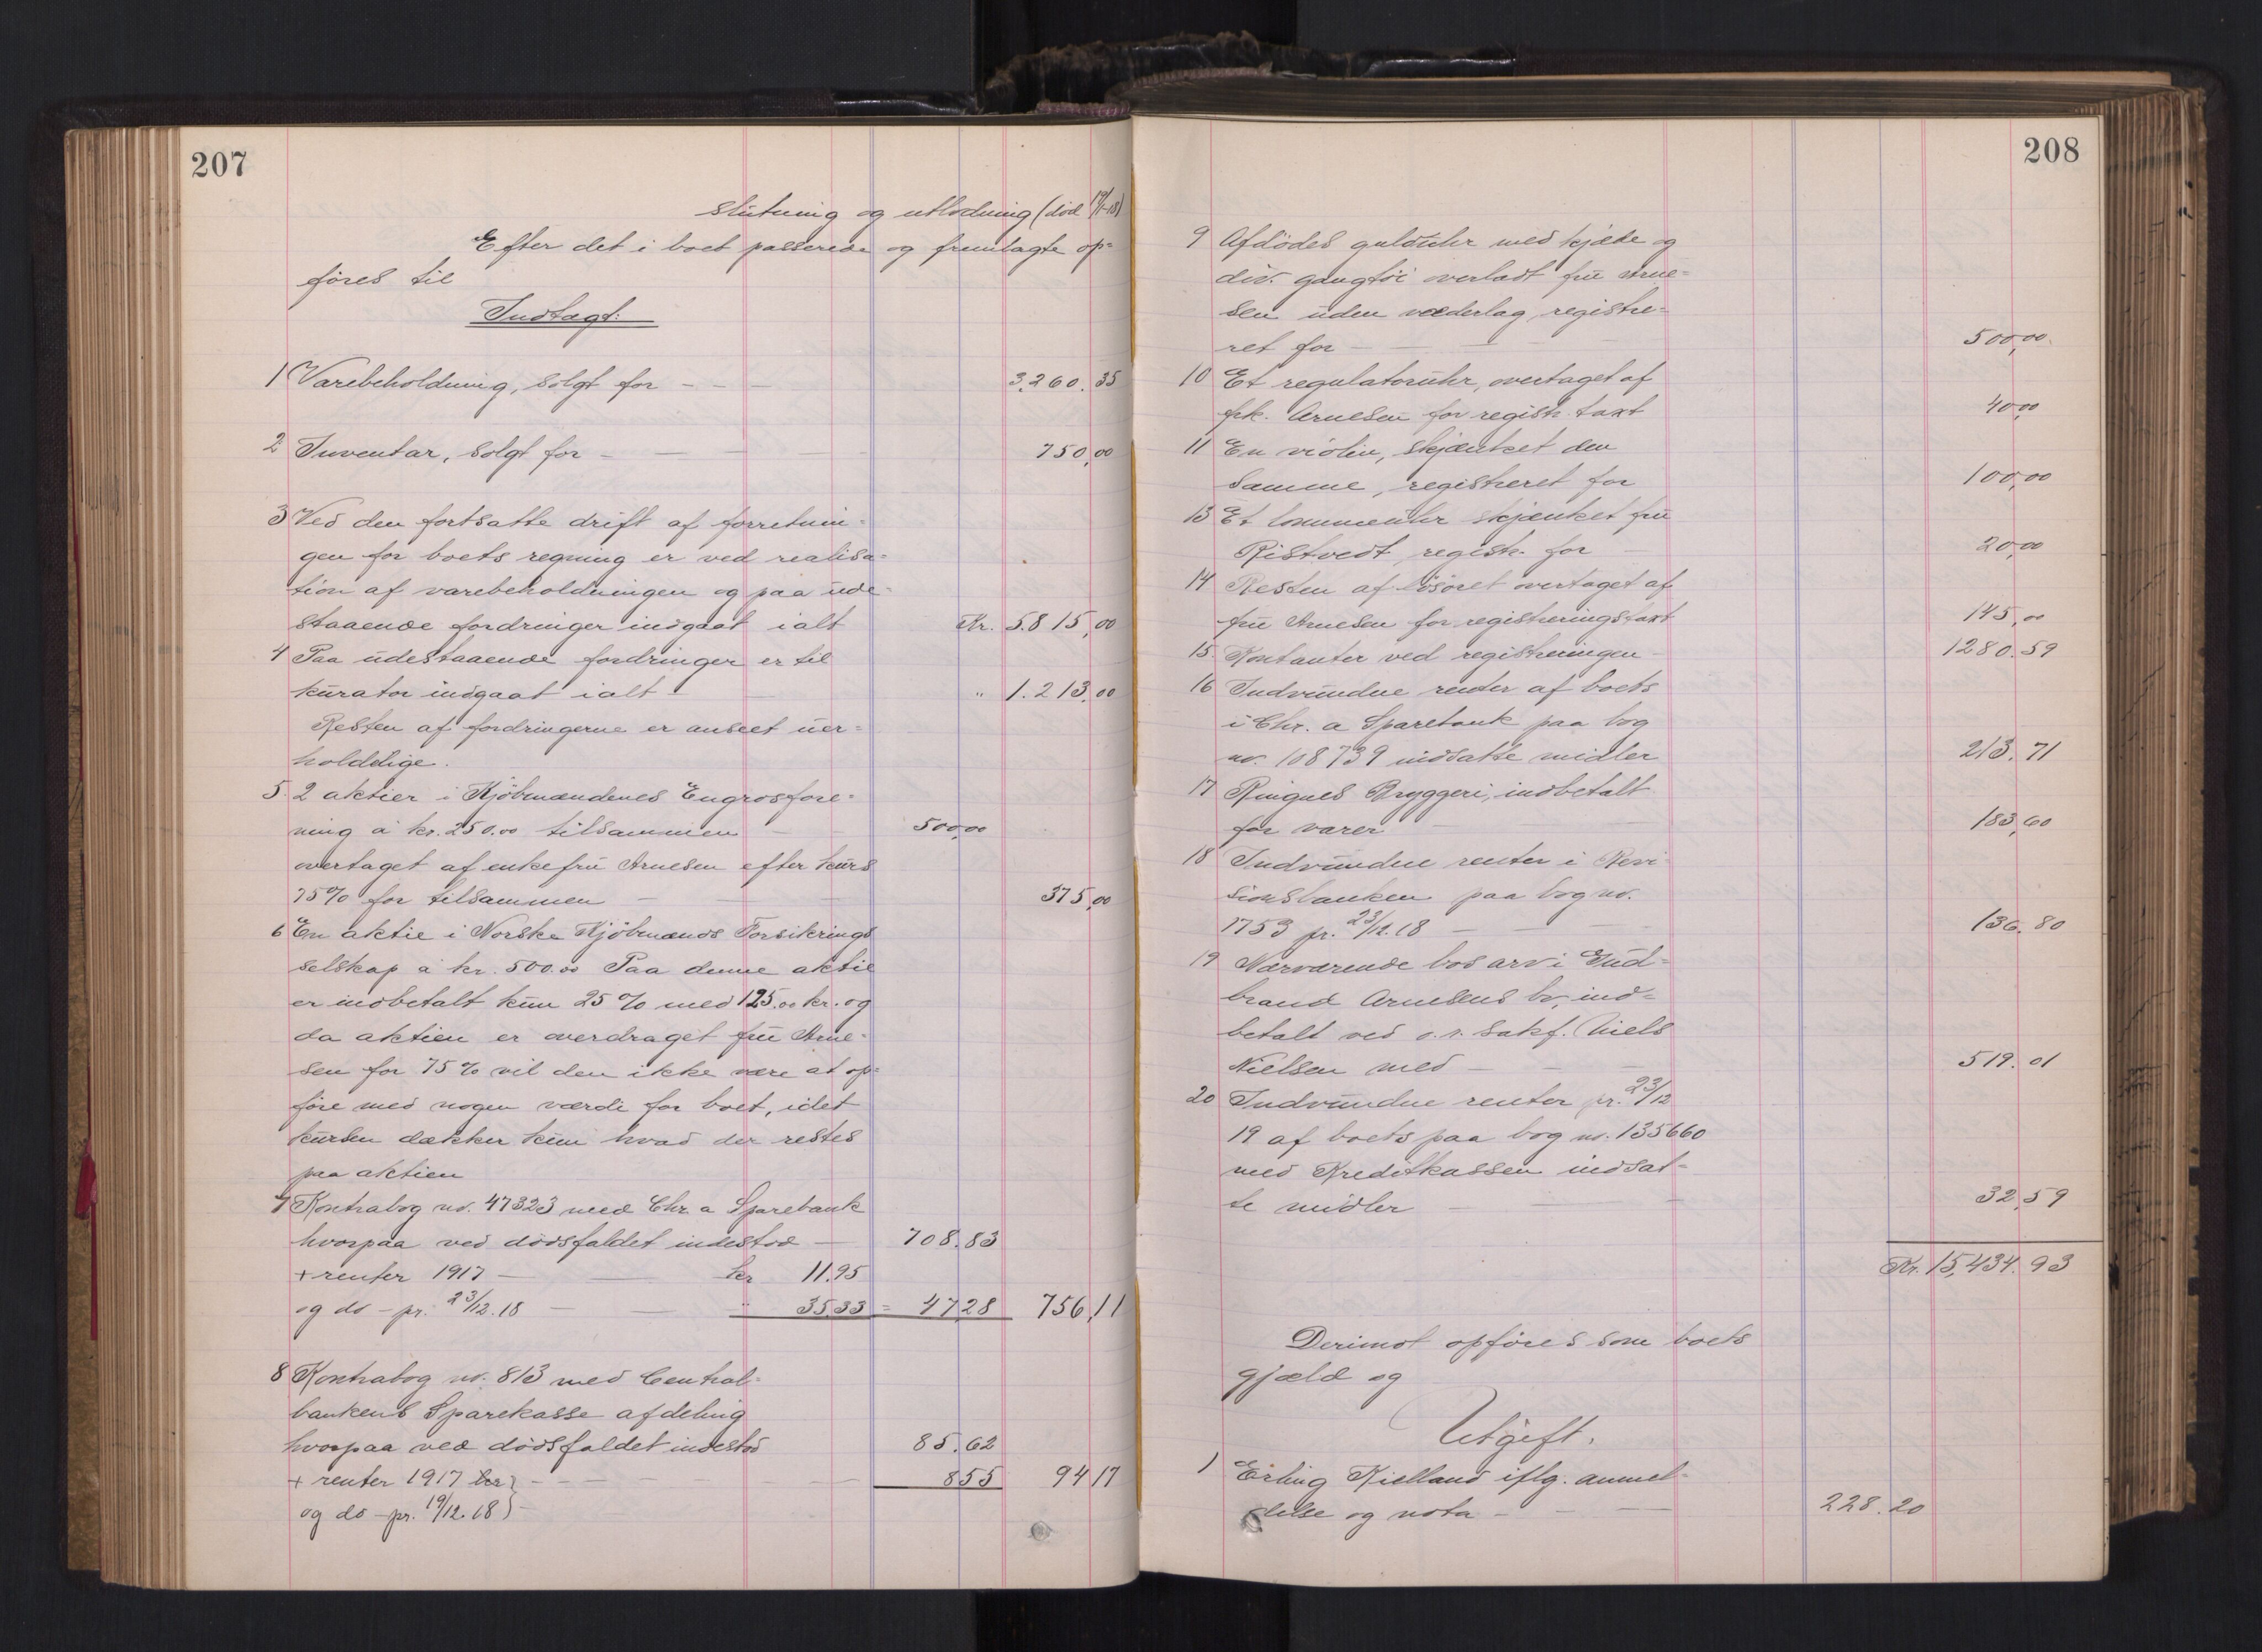 207
slutning og utlodning (död 19/1-18)
Efter det i boet passerede og fremlagte op=
föres til
Indtægt:
1 Varebeholdning, solgt for - - - 3,260.35
2 Inventar, solgt for - - - 750,00
3 Ved den fortsatte drift af forretnin=
gen for boets regning er ved realisa=
tion af varebeholdningen og paa ude=
staaende fordringer indgaat ialt Kr. 5.815,00
4 Paa udestaaende fordringer er til
kurator indgaat ialt - " 1.213,00
Resten af fordringerne er anseet uer=
holdelige.
5. 2 aktier i Kjöbmændenes Engrosfore=
ning á kr. 250.00 tilsammen - 500,00
overtaget af enkefru Arnesen efter kurs
75% for tilsammen - - - 375,00
6 En aktie i Norske Kjöbmænds Forsikrings
selskap á kr. 500.00 Paa denne aktie
er indbetalt kun 25% med 125.00 kr. og
da aktien er overdraget fru Arne=
sen for 75% vil den ikke være at op=
före med nogen værdi for boet, idet
kursen dækker kun hvad der restes
paa aktien
7 Kontrabog no. 47323 med Chr. a Sparebank
hvorpaa ved dödsfaldet indestod - 708.83
+ renter 1917 - - kr 11.95
og do - pr. 23/12.18 - - " 35.33 = 47.28 756,11
8 Kontrabog no. 813 med Central=
bankens Sparekasse afdeling
hvorpaa ved dödsfaldet indestod 85.62
+ renter 1917 kr } - - - 855 94 17
og do - pr. 19/12.18 } -
208
9 Afdödes guldúhr med kjæde og
div. gangtöi overladt fru Arne=
sen uden vederlag, registre=
ret for - - - - 500,00.
10 Et regulatoruhr, overtaget af
frk. Arnesen for registr. taxt 40,00
11 En violin, skjænket den
samme, registreret for 100,00
13 Et lommeuhr skjænket fru
Ristvedt, registr. for - 20,00
14 Resten af lösöret overtaget af
fru Arnesen for registreringstaxt 145,00
15. Kontanter ved registreringen - 1280.59
16 Indvundne renter af boets
i Chr. a Sparebank paa bog
no. 108739 indsatte midler 213.71
17 Ringnes Bryggeri, indbetalt
for varer - - 183,60
18 Indvundne renter i Revi=
sionsbanken paa bog no.
1753 pr. 23/12.18 - - 136.80
19 Nærværende bos arv i Gud=
brand Arnesens bo, ind=
betalt ved o.r. sakf. Niels
Nielsen med - - - 519.01
20 Indvundne renter pr. 23/12
19 af boets paa bog no. 135660
med Kreditkassen indsat=
te midler - - - 32,59
Kr. 15,434.93
Derimot opföres som boets
gjæld og
Utgift.
1 Erling Kielland iflg. anmel=
delse og nota - - - 228.20